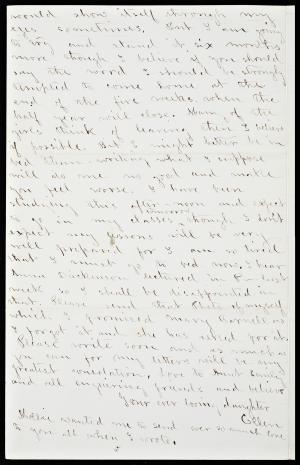 would show itself through my
eyes sometimes. But I am going
to try and stand it six months
more though I believe if you should
say the word I should be strongly
tempted to come home at the
end of the five weeks when the
half year will close. Many of the
girls think of leaving then I believe
if possible. But I might better be in
bed than writing what I suppose
will do me no good and make
you feel worse. I have been
studying this afternoon and expect
to go in my classes tomorrow though I don't
expect my lessons will be very
well prepared for I am so tired
that I must go to bed now. I hear
Anna Dickinson lectured in last
week so I shall be disappointed in
that. Please send that photo of myself
which I promised Mary Cornelias
I forgot it and she has asked for it.
Please write soon and as much as
you can for my letters will be my
greatest consolation. Love to Aunt
and all enquiring friends and believe
Your ever loving daughter
Ellen
wanted me to send ever so much love
to you all when I wrote.